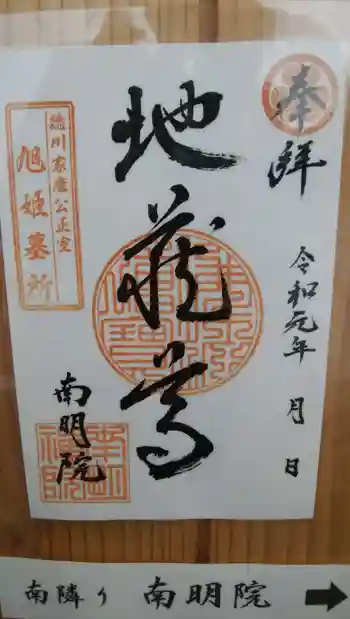 奉拝
令和元年　月　日
地蔵尊
徳川家康公正室
旭姫墓所
南明院
南隣り 南明院 →